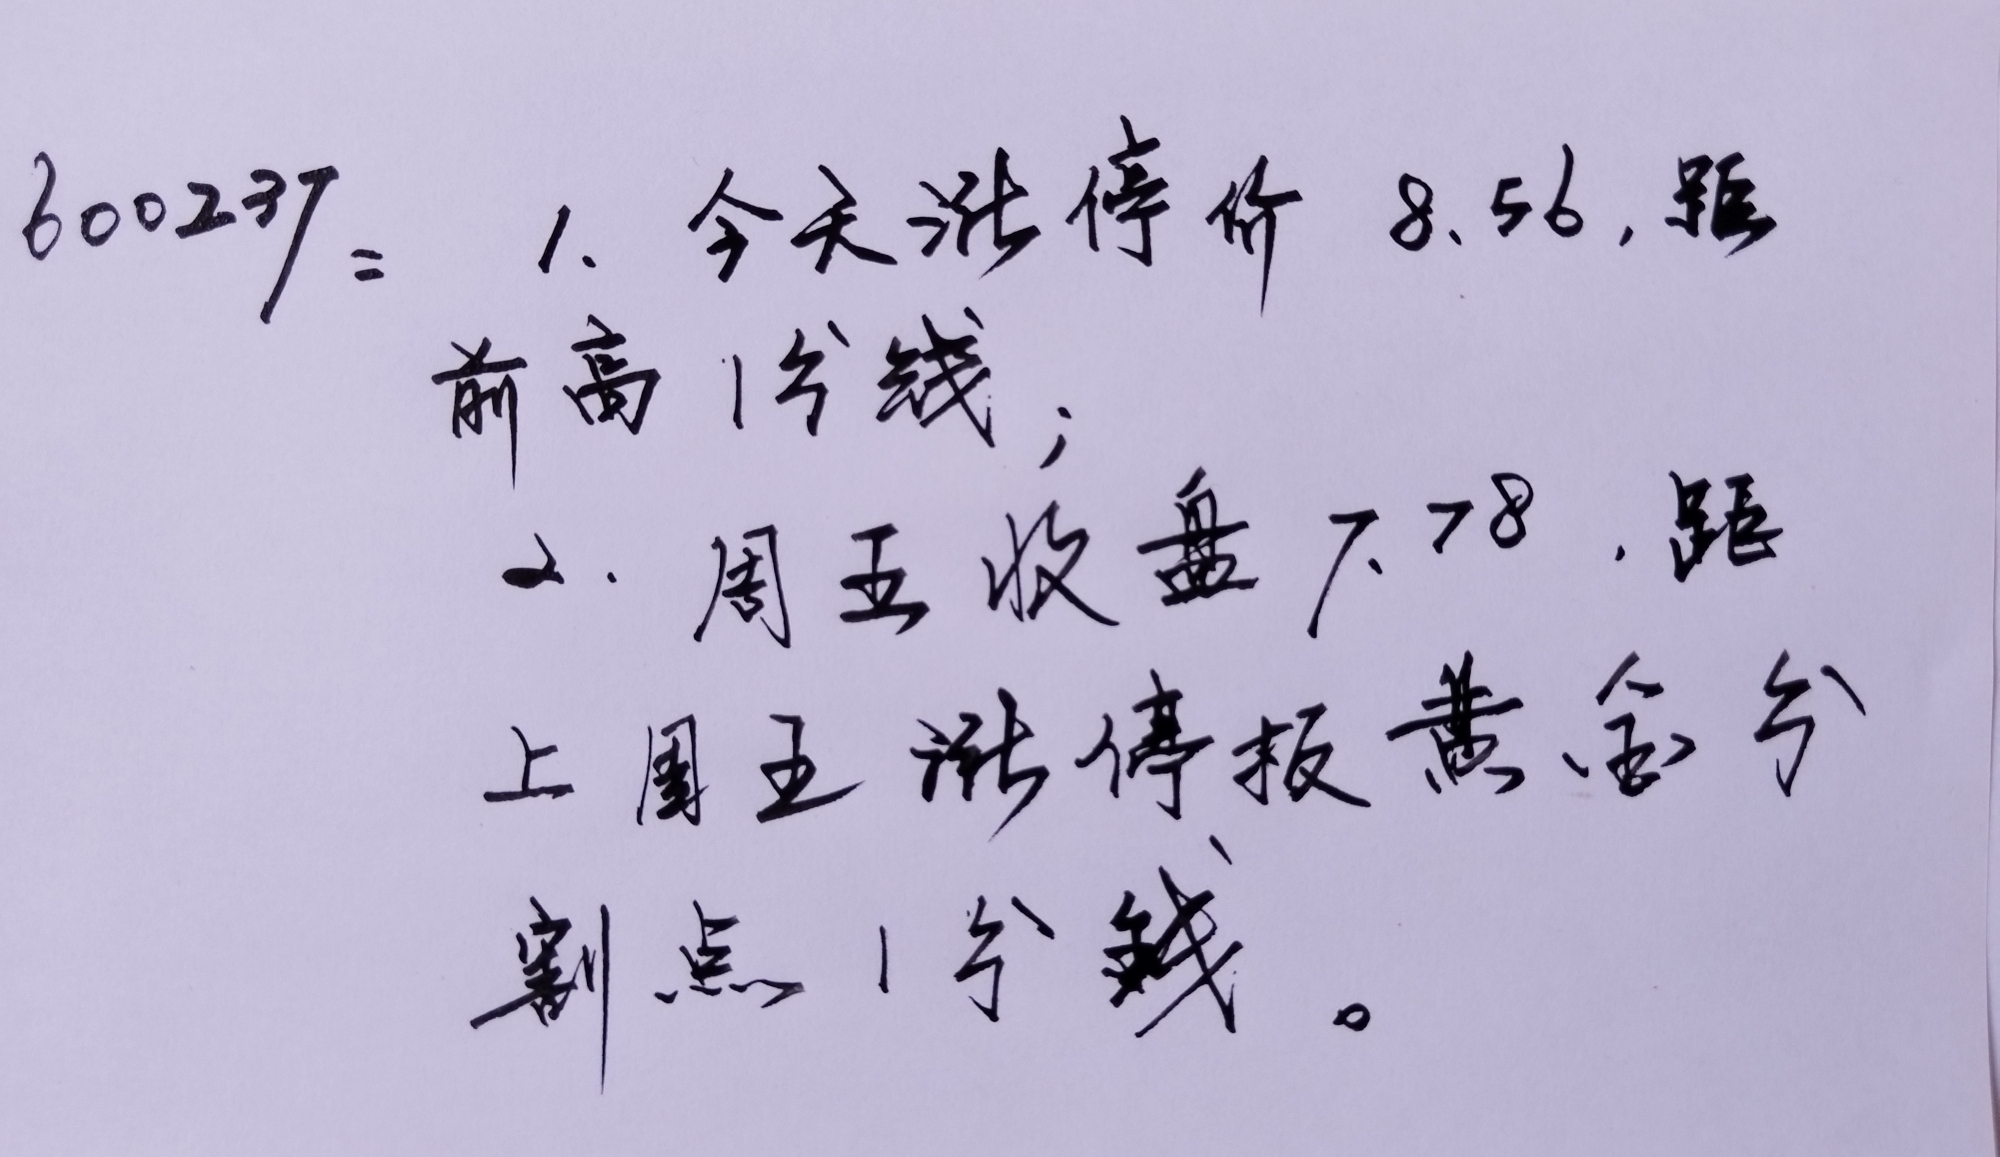 600237: 1. 今天涨停价 8.56,距
前高1分钱;
2. 周五收盘7.78,距
上周五涨停板黄金分
割点1分钱。